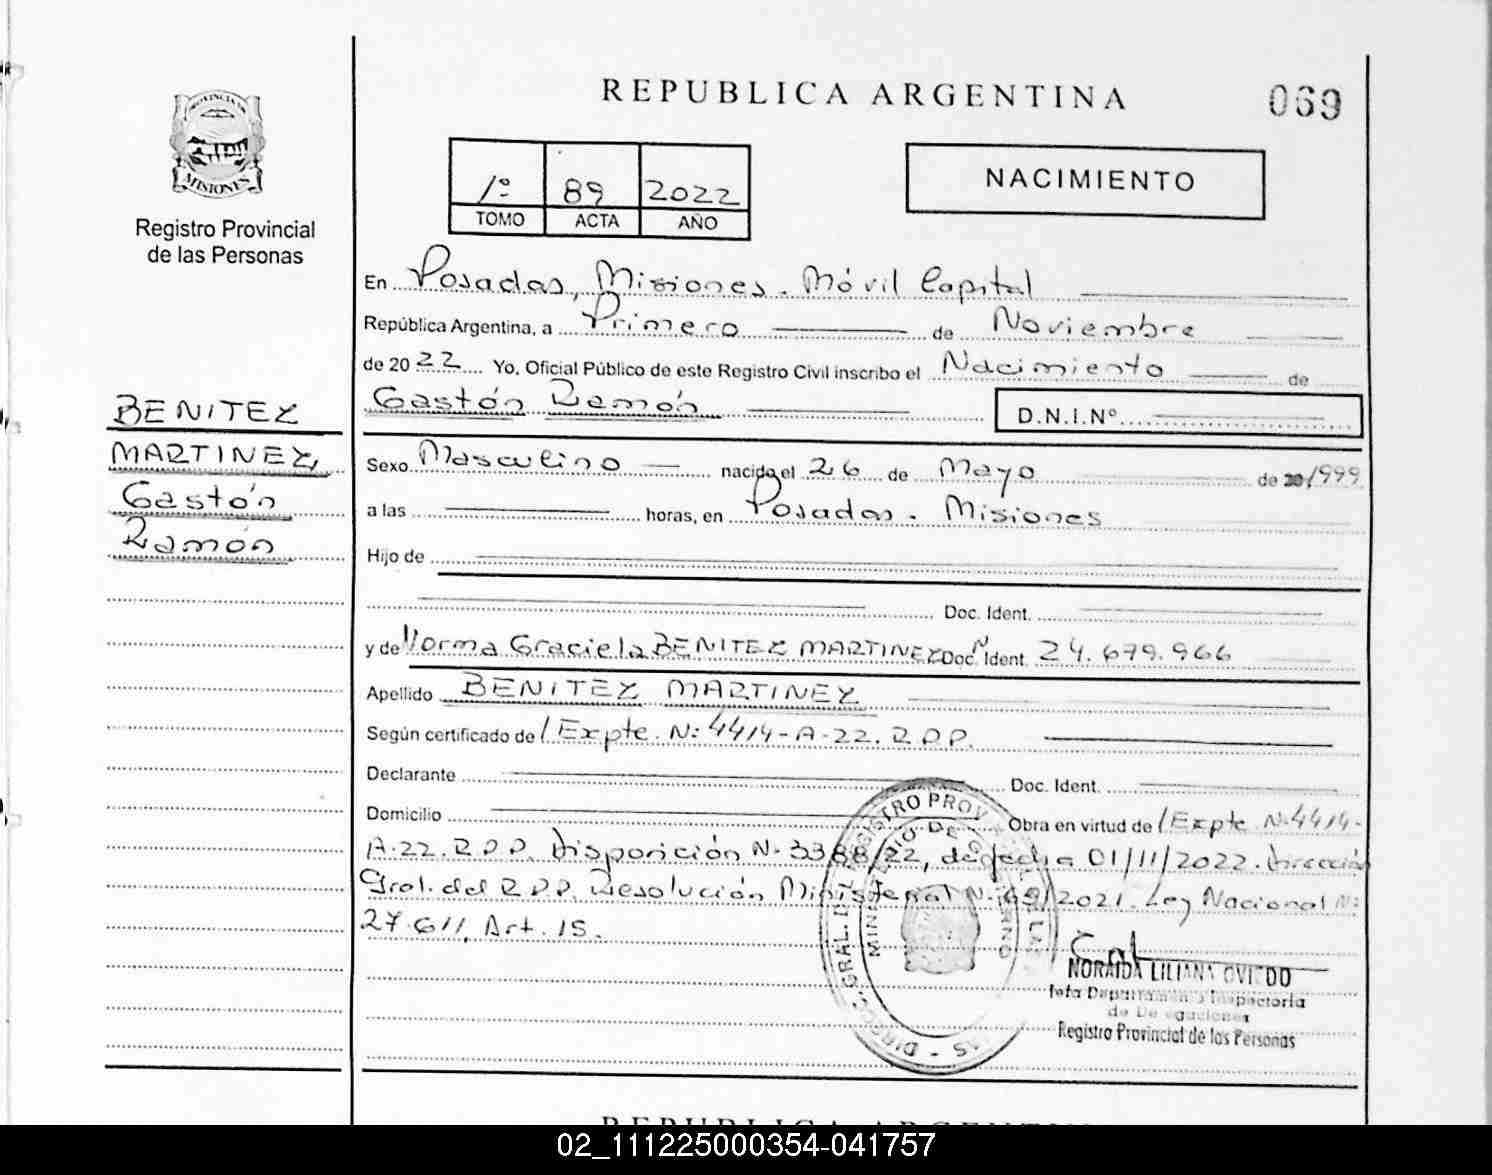 REPUBLICA ARGENTINA
069
PROVINCIA DE
MISIONES
Registro Provincial
de las Personas
1º 89 2022
TOMO ACTA AÑO
NACIMIENTO
En Posadas, Misiones. Móvil Capital
República Argentina, a Primero de Noviembre
de 2022 Yo, Oficial Público de este Registro Civil inscribo el Nacimiento de
Gastón Ramón D.N.I.Nº
BENITEZ
MARTINEZ,
Gastón
Ramón
Sexo Masculino nacido el 26 de Mayo de 1999
a las horas, en Posadas. Misiones
Hijo de
Doc. Ident.
y de Norma Graciela BENITEZ MARTINEZ Doc. Ident. N 24.679.966
Apellido BENITEZ MARTINEZ
Según certificado de / Expte. N: 4414-A-22. R.P.P.
Declarante Doc. Ident.
Domicilio Obra en virtud de / Expte N-4414-
A-22. R.P.P. Disposición N-3388/22, de fecha 01/11/2022. Dirección
Gral. del R.P.P. Resolución Ministerial N-69/2021. Ley Nacional N:
27.611, Art. 15.
NORAIDA LILIANA OVIEDO
Jefa Departamento Inspectoria
de Delegaciones
Registro Provincial de las Personas
02_111225000354-041757